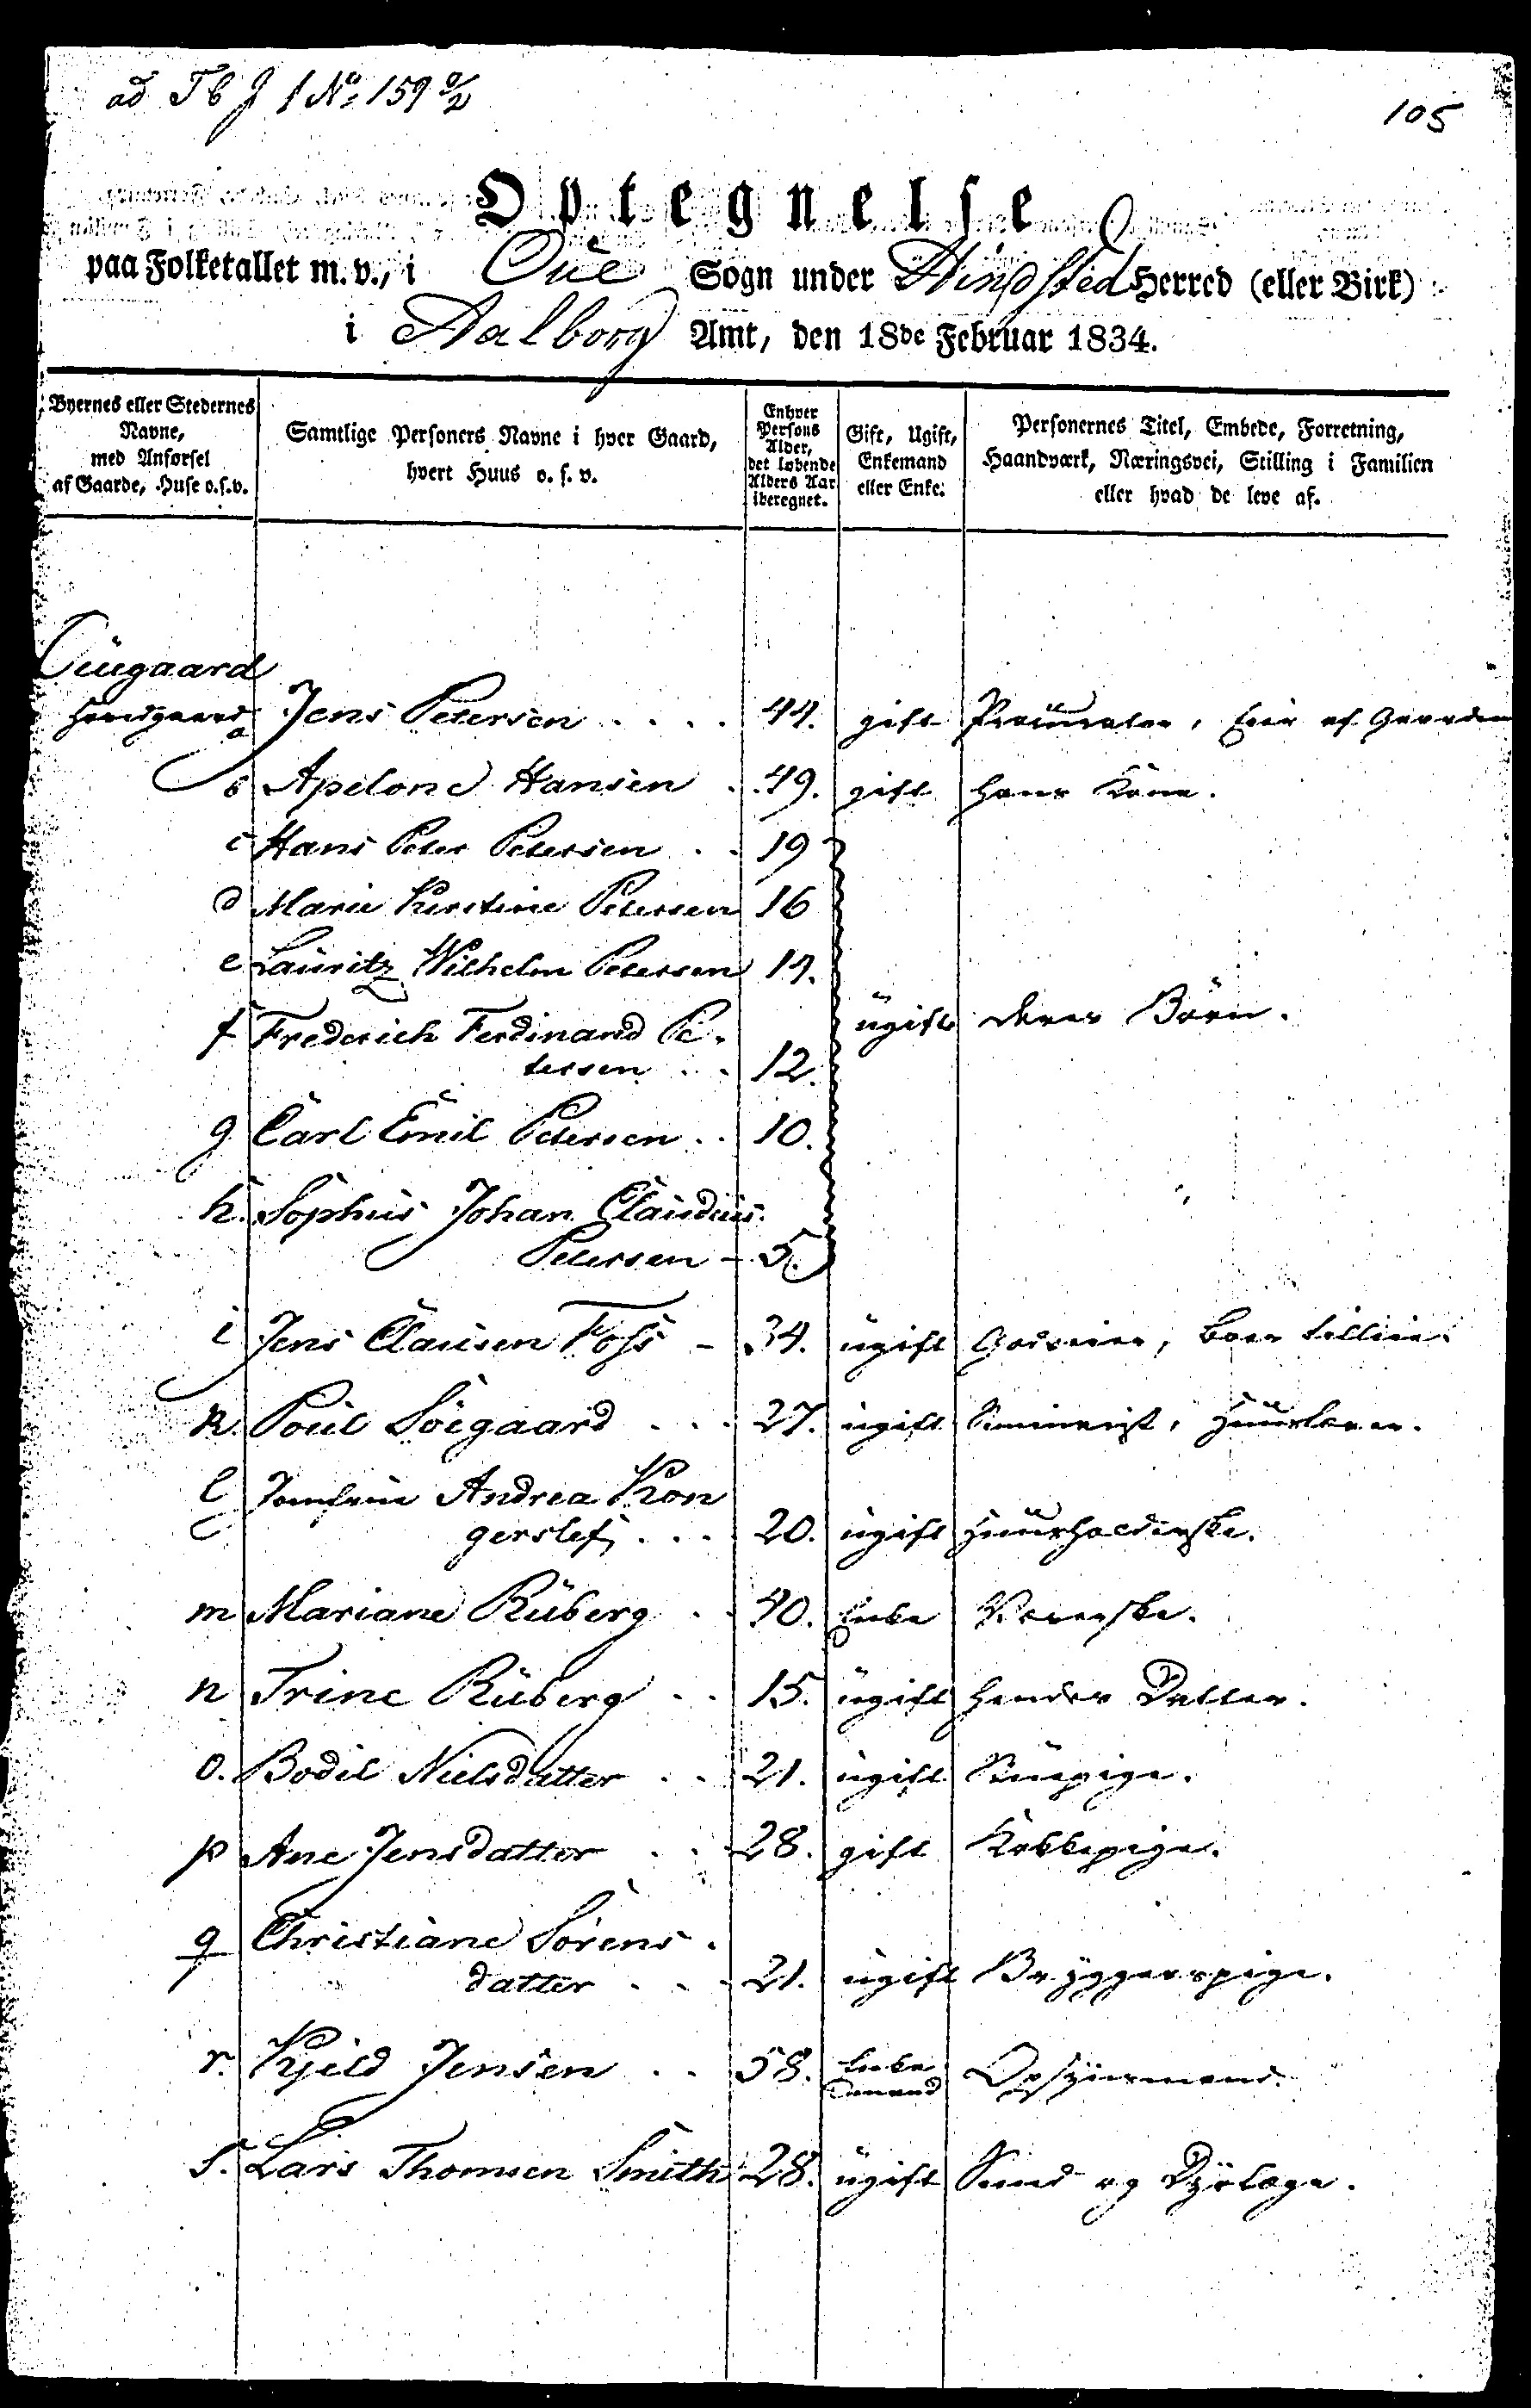 ad Tb J 1 No: 159 9/2
105
Optegnelse
paa Folketallet m. v., i Oue Sogn under Hindsted Herred (eller Birk)
i Aalborg Amt, den 18de Februar 1834.
Byernes eller Stedernes Navne, med Anførsel af Gaarde, Huse o.s.v.
Samtlige Personers Navne i hver Gaard, hvert Huus o. s. v.
Enhver Persons Alder, det løbende Alders Aar iberegnet.
Gift, Ugift, Enkemand eller Enke.
Personernes Titel, Embede, Forretning, Haandværk, Næringsvei, Stilling i Familien eller hvad de leve af.
Ouegaard
Hovedgaard a Jens Petersen .... 44. gift Procurator, Eier af Gaarden
b Apelone Hansen . 49. gift hans Kone.
c Hans Peter Petersen .. 19
d Marie Kirstine Petersen 16
e Lauritz Wilhelm Petersen 14.
f Frederich Ferdinand Pe- ugift deres Børn.
tersen .. 12.
g Carl Emil Petersen .. 10.
h. Sophus Johan Claudius
Petersen - 5.
i Jens Clausen Foss - 34. ugift Godseier, boer tilleie.
k. Poul Söegaard ... 27. ugift Seminarist, Huuslærer.
l Jomfrue Andrea Kon
gerslef ... 20. ugift Huusholderske.
m Mariane Ruberg .. 40. Enke Væverske.
n Trine Ruberg .. 15. ugift hendes Datter.
o. Bodil Nielsdatter .. 21. ugift Stuepige.
p Ane Jensdatter .. 28. gift Kokkepige.
q Christiane Sörens-
datter ... 21. ugift Bryggerspige.
r. Kjeld Jensen .. 58. Enkemand Opsynsmand.
s. Lars Thomsen Smith 28. ugift Smed og Dyrlæge.